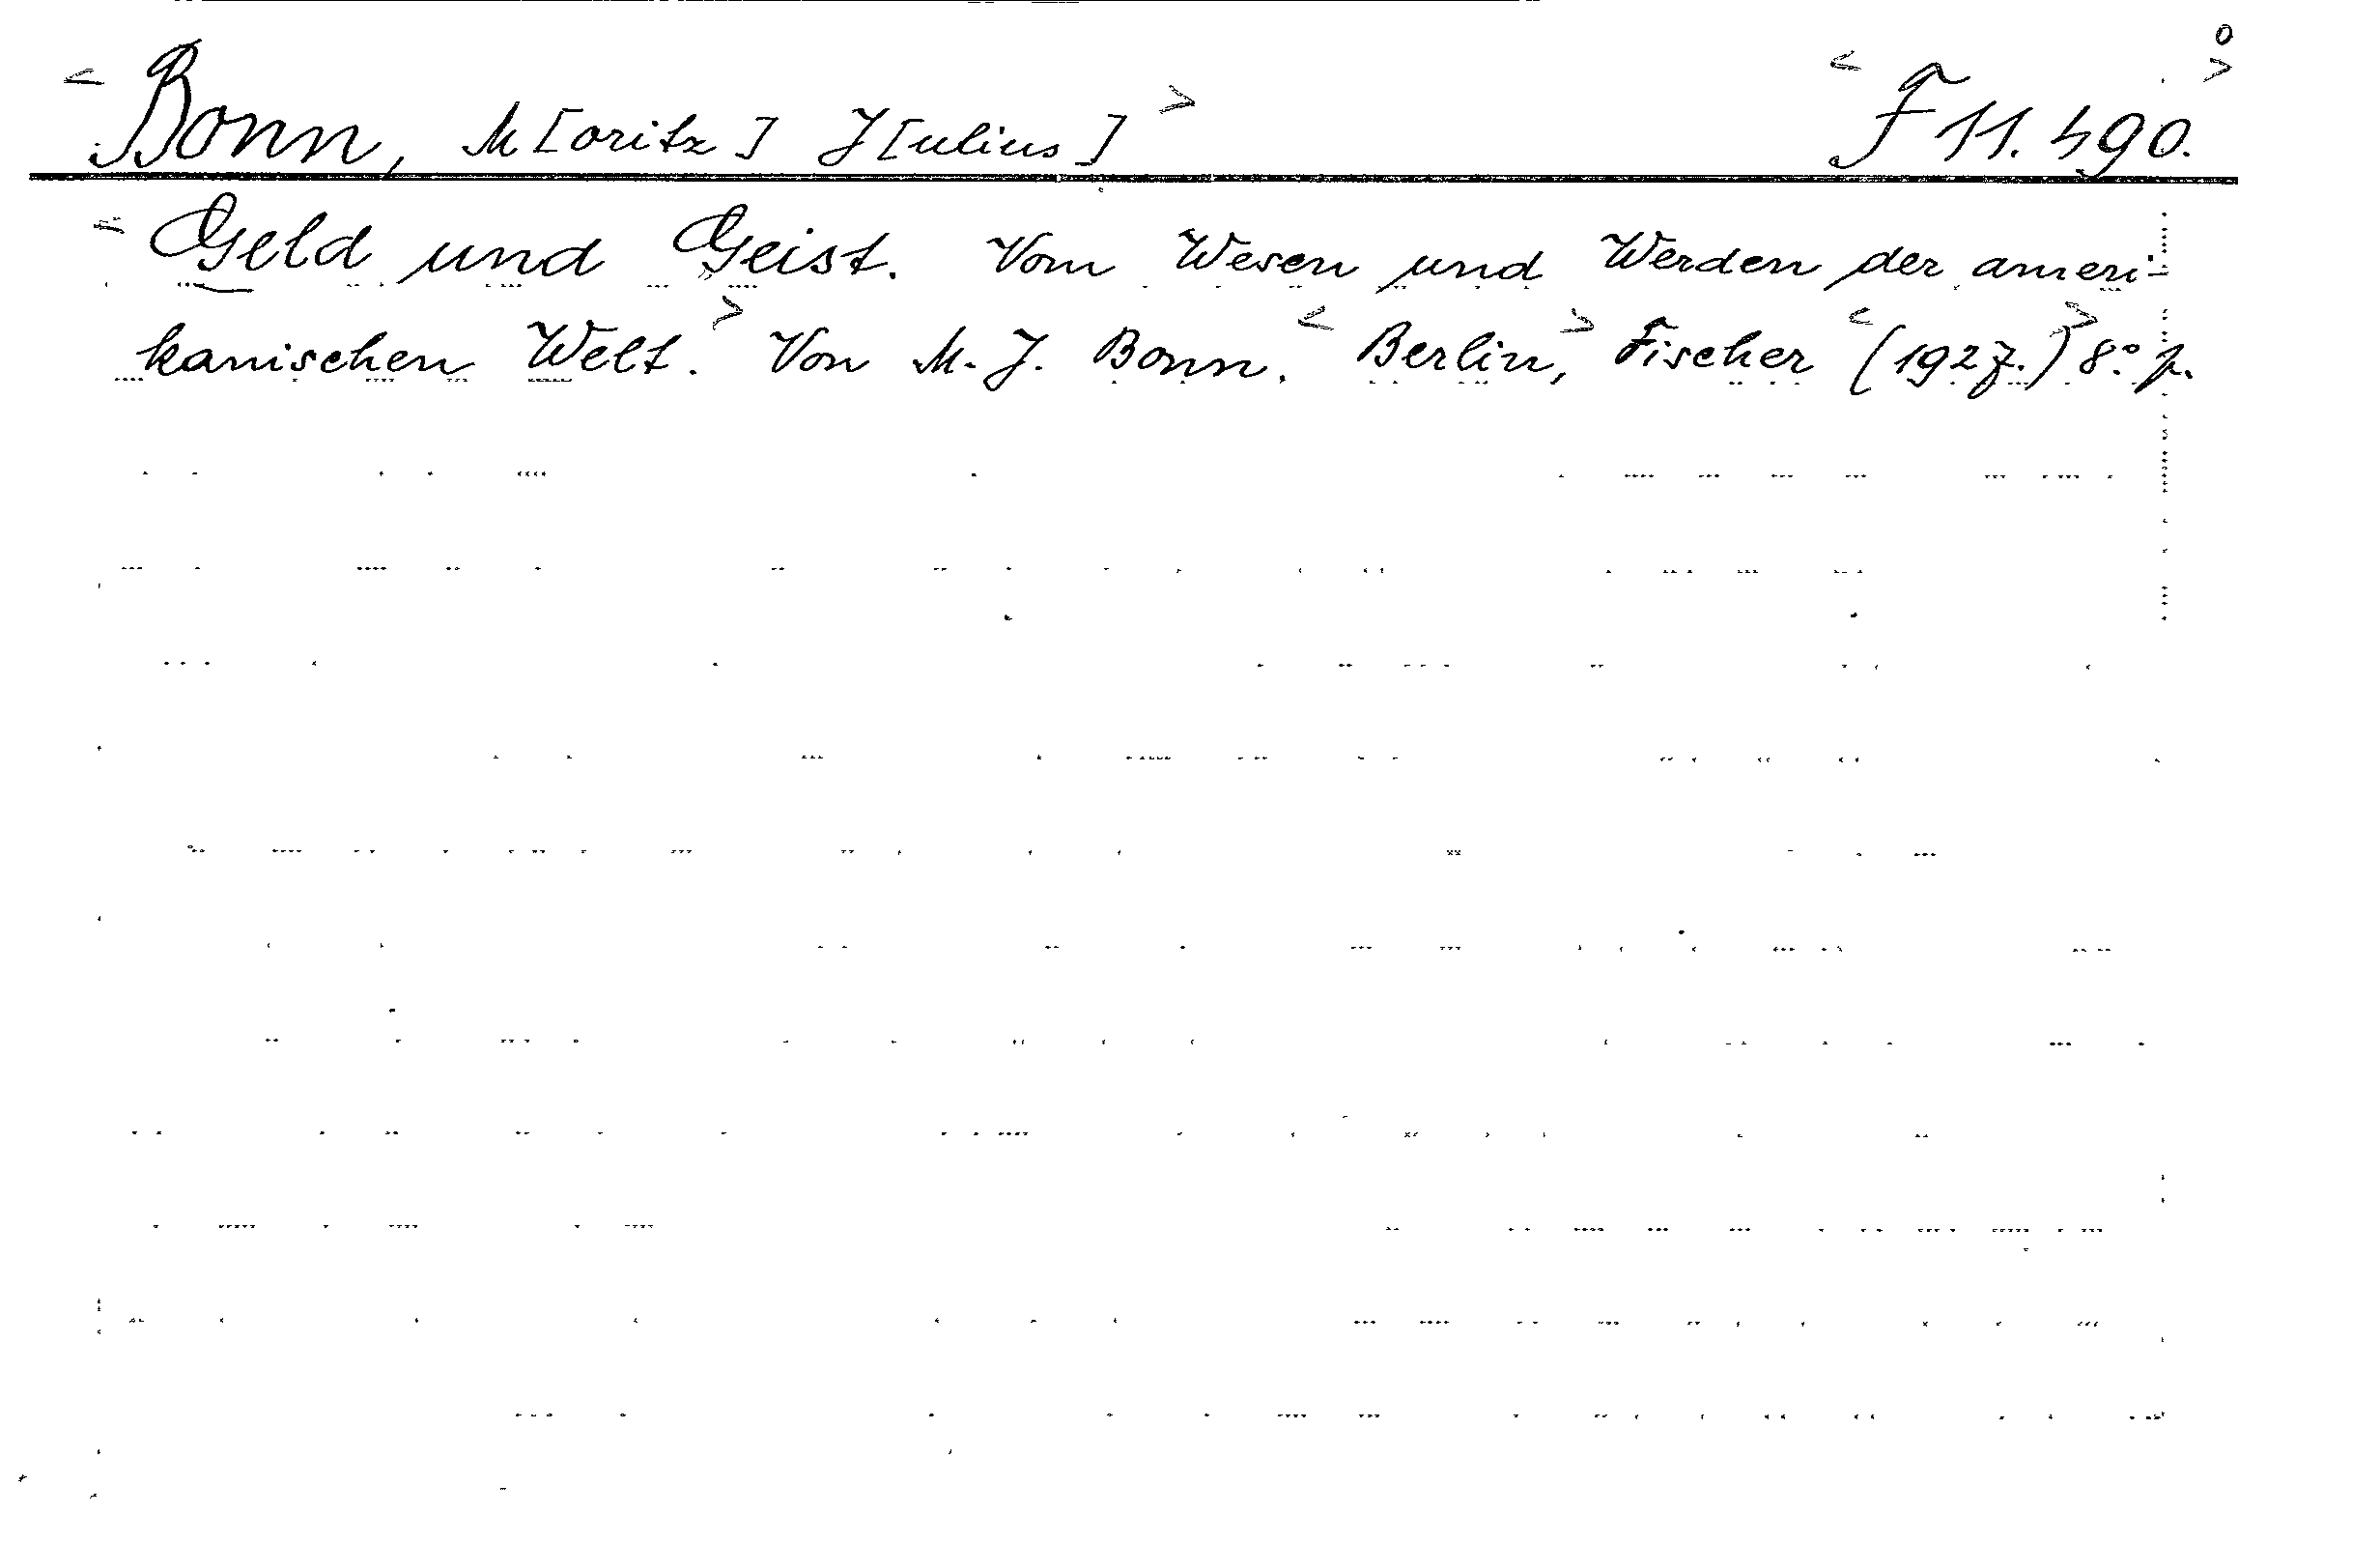 < Bonn, M[oritz] J[ulius] > < F 11.490. >
< Geld und Geist. Vom Wesen und Werden der ameri-
kanischen Welt. > Von M. J. Bonn. < Berlin, > Fischer < (1927.) > 8.° p.